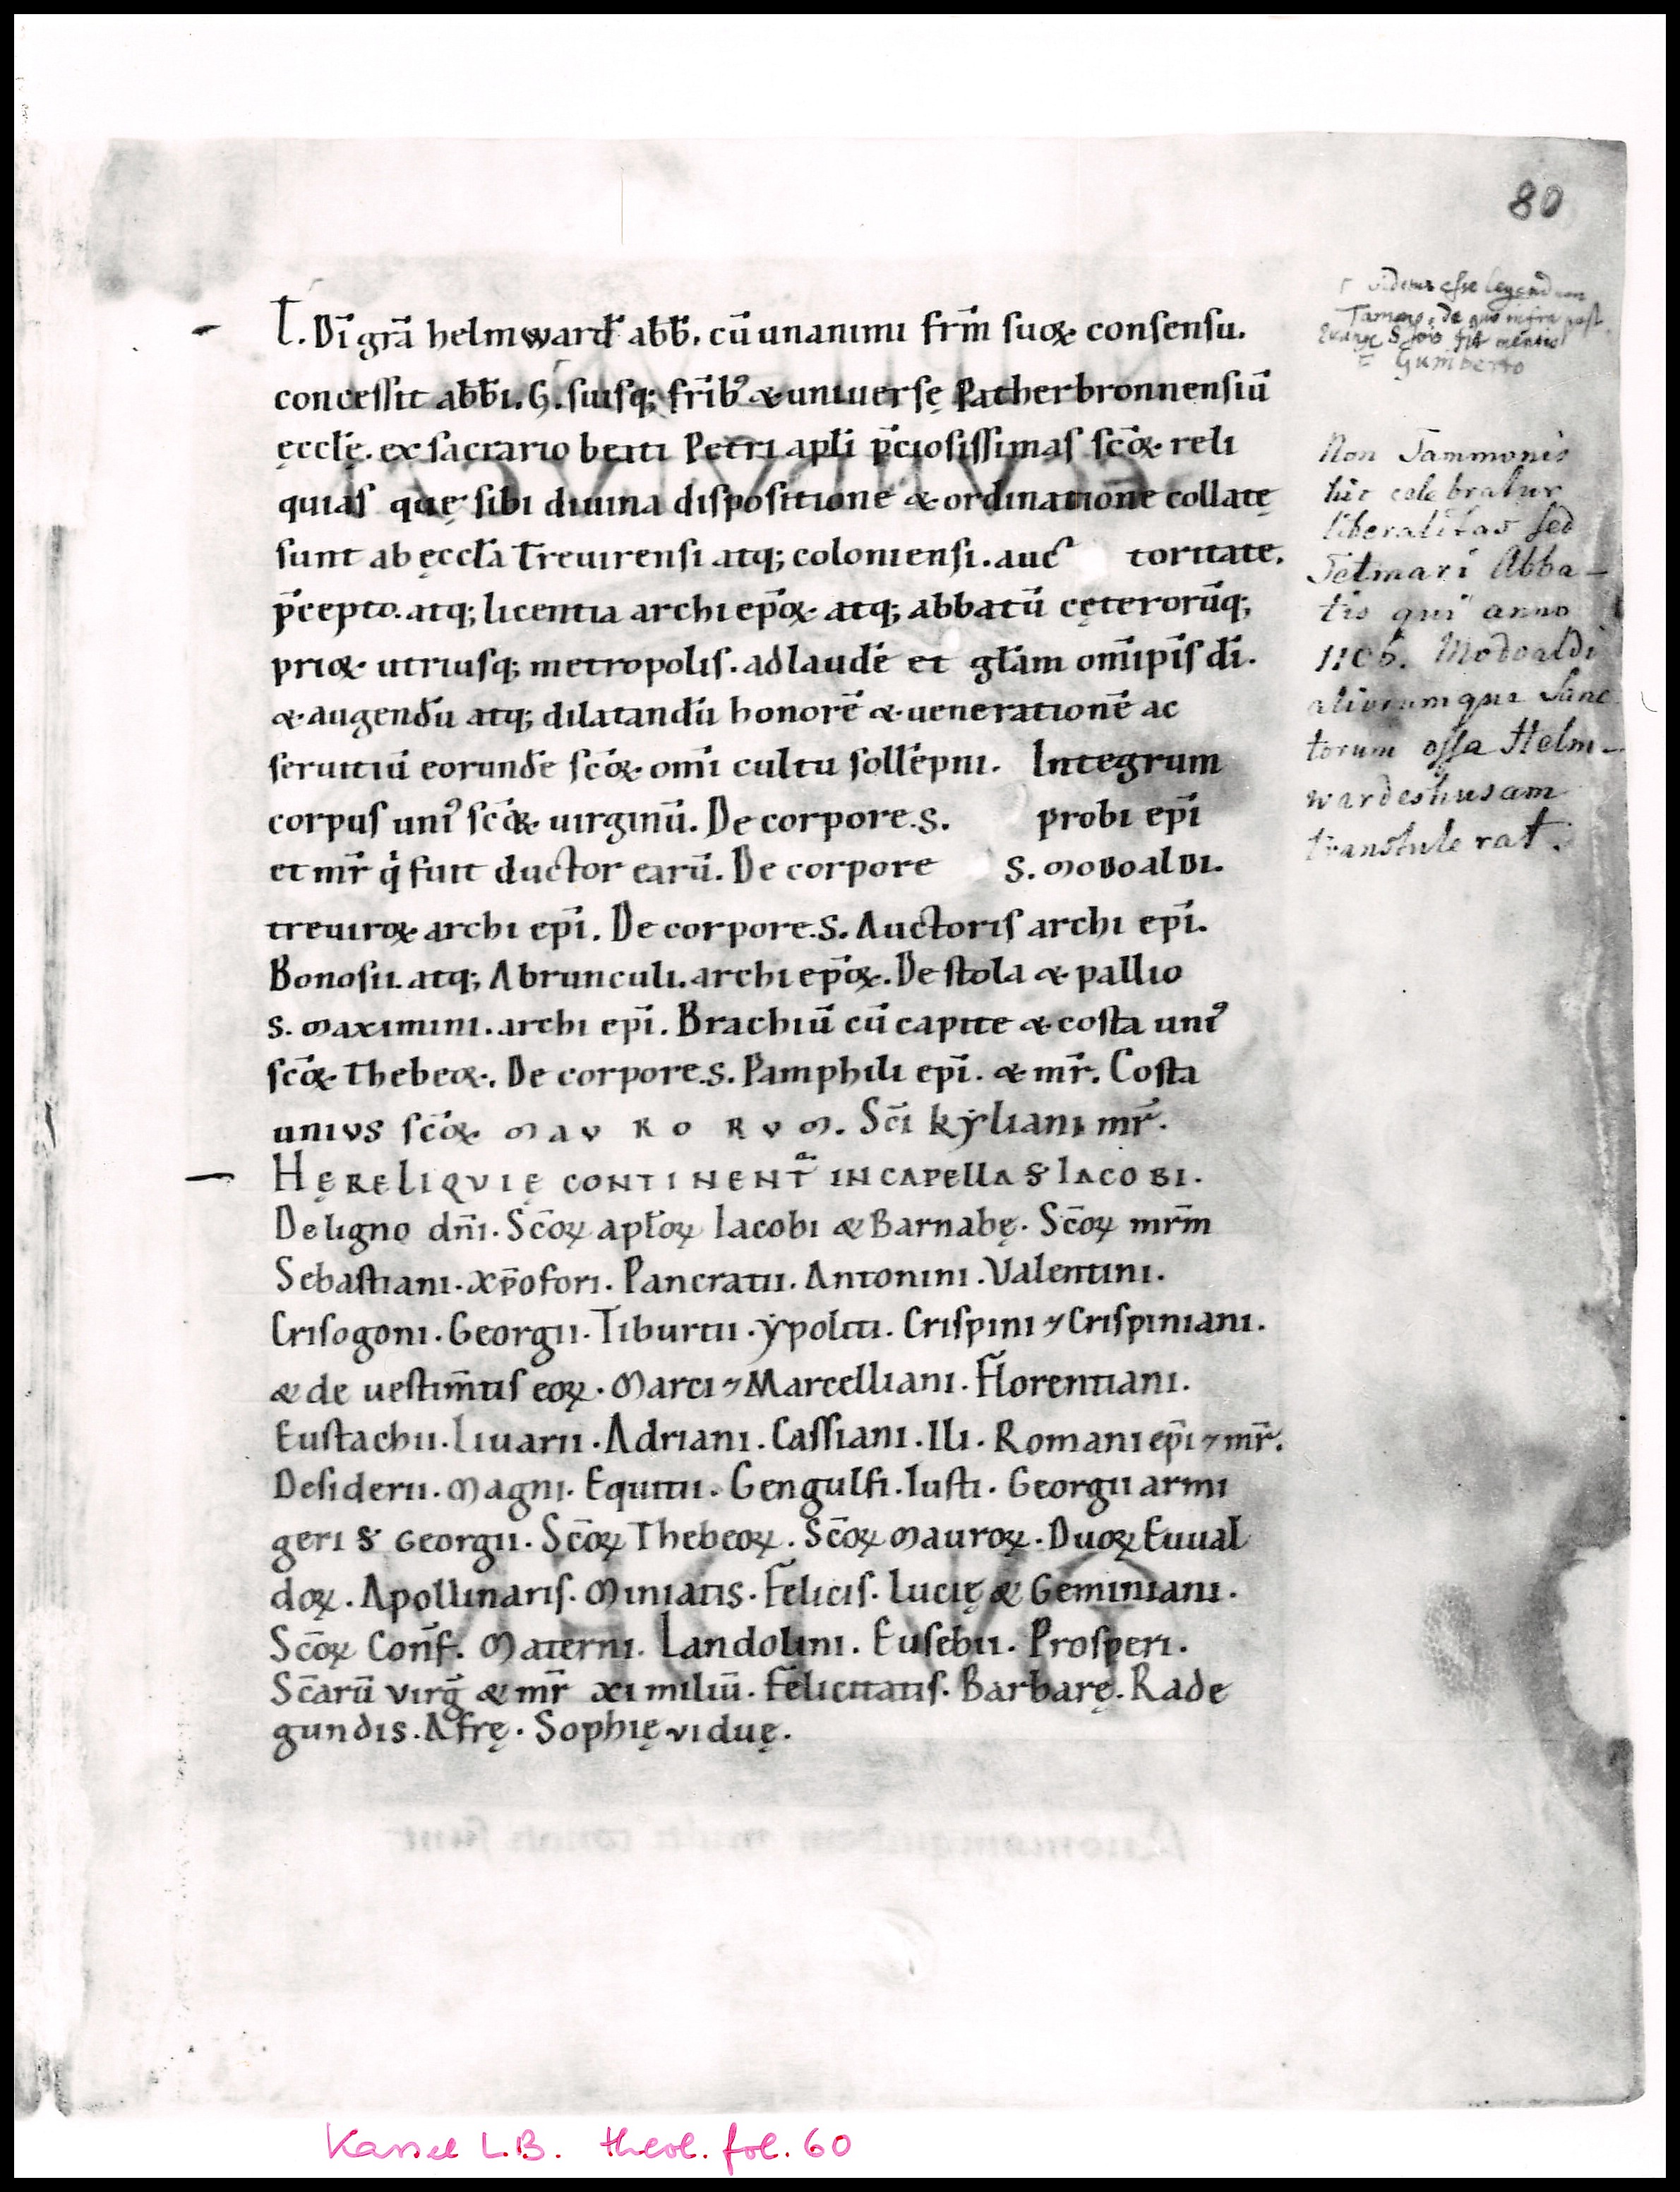 80
T. Dī grā helmward̄ abb̄. cū unanimi fr̄m suoꝝ consensu.
concessit abb̄i. G. suisq; fr̄ib⁹ & uniuersę Patherbronnensiū
ęccl̄ę. ex sacrario beati Petri apl̄i p̄ciosissimas sc̄oꝝ reli
quias quę sibi diuina dispositione & ordinatione collatę
sunt ab ęccl̄a Treuirensi atq; coloniensi. auc toritate.
p̄cepto. atq; licentia archiep̄oꝝ atq; abbatū cęterorūq;
prioꝝ utriusq; metropolis. ad laudē et gl̄am om̄ip̄is d̄i.
& augendū atq; dilatandū honorē & uenerationē ac
seruitiū eorundē sc̄oꝝ om̄i cultu sollēpni. Integrum
corpus uni⁹ sc̄aꝝ uirginū. De corpore. S. probi ep̄i
et mr̄ q̇ fuit ductor earū. De corpore S. MODOALDI.
treuiroꝝ archi ep̄i. De corpore. S. Auctoris archi ep̄i.
Bonosii. atq; Abrunculi. archiep̄oꝝ. De stola & pallio
S. Maximini. archi ep̄i. Brachiū cū capite & costa uni⁹
sc̄oꝝ Thebeoꝝ. De corpore. S. Pamphili ep̄i. & mr̄. Costa
unius sc̄oꝝ MAURORUM. Sc̄i kẏliani mr̄.
HĘ RELIQVIĘ CONTINENT᷑ IN CAPELLA S IACOBI.
De ligno dn̄i. Sc̄oꝝ apl̄oꝝ Iacobi & Barnabę. Sc̄oꝝ mr̄m
Sebastiani. xp̄ofori. Pancratii. Antonini. Valentini.
Crisogoni. Georgii. Tiburtii. ẏpoliti. Crispini ⁊ Crispiniani.
& de uestim̄tis eoꝝ. Marci ⁊ Marcelliani. Florentiani.
Eustachii. Liuarii. Adriani. Cassiani. Ili. Romani ep̄i ⁊ mr̄.
Desiderii. Magni. Equitii. Gengulfi. Iusti. Georgii armi
geri S Georgii. Sc̄oꝝ Thebeoꝝ. Sc̄oꝝ Mauroꝝ. Duoꝝ Euual
doꝝ. Apollinaris. Miniatis. Felicis. Lucię & Geminiani.
Sc̄oꝝ Conf̄. Materni. Landolini. Eusebii. Prosperi.
Sc̄arū virḡ & mr̄ xi miliū. Felicitatis. Barbarę. Rade
gundis. Afrę. Sophię viduę.
videtur esse legendum
Tamms, de quo infra post
Evang S. Jois fit mentio
Gumberto
Non Tammonis
hic celebratur
liberalitas sed
Tetmari Abba-
tis qui anno
1106. Modoaldi
aliorumque Sanc
torum ossa Helm-
wardeshusam
transtulerat.
Kassel L.B. theol. fol. 60